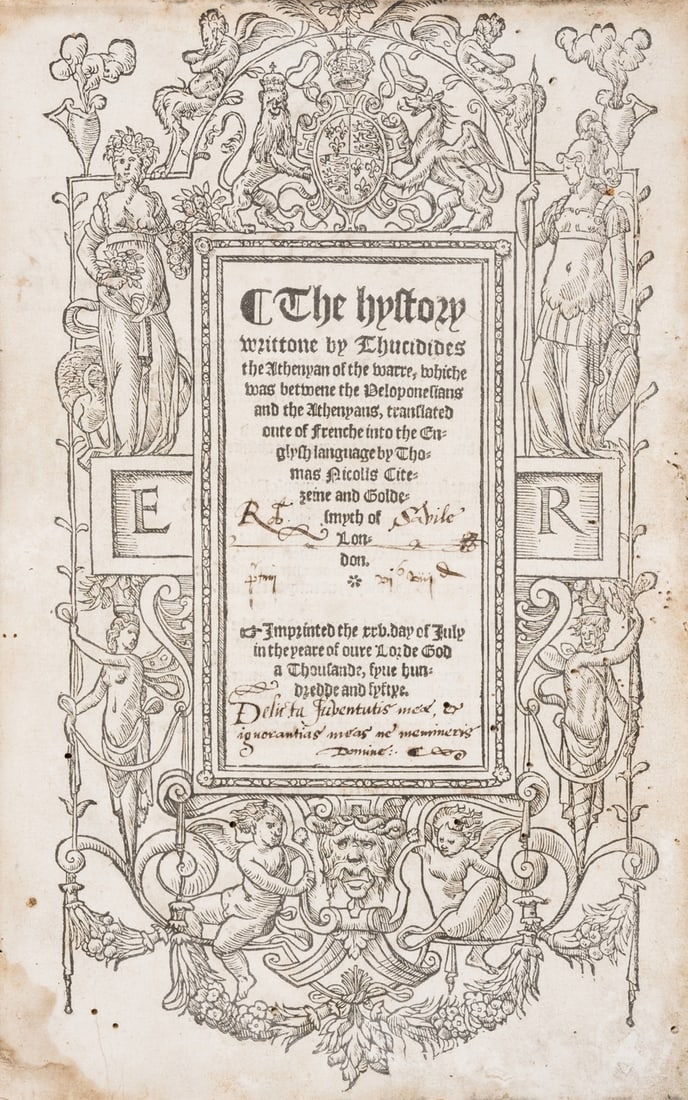 ¶ The hystory
writtone by Thucidides
the Athenyan of the warre, whiche
was betwene the Peloponesians
and the Athenyans, translated
oute of Frenche into the En-
glysh language by Tho-
mas Nicolls Cite-
zeine and Golde-
smyth of Savile
Lon-
don.
E R
Imprinted the xxv. day of July
in the yeare of oure Lorde God
a Thousande, fyue hun-
dredde and fyftye.
Delicta Juventutis meæ, et
ignorantias meas ne memineris
Domine:.